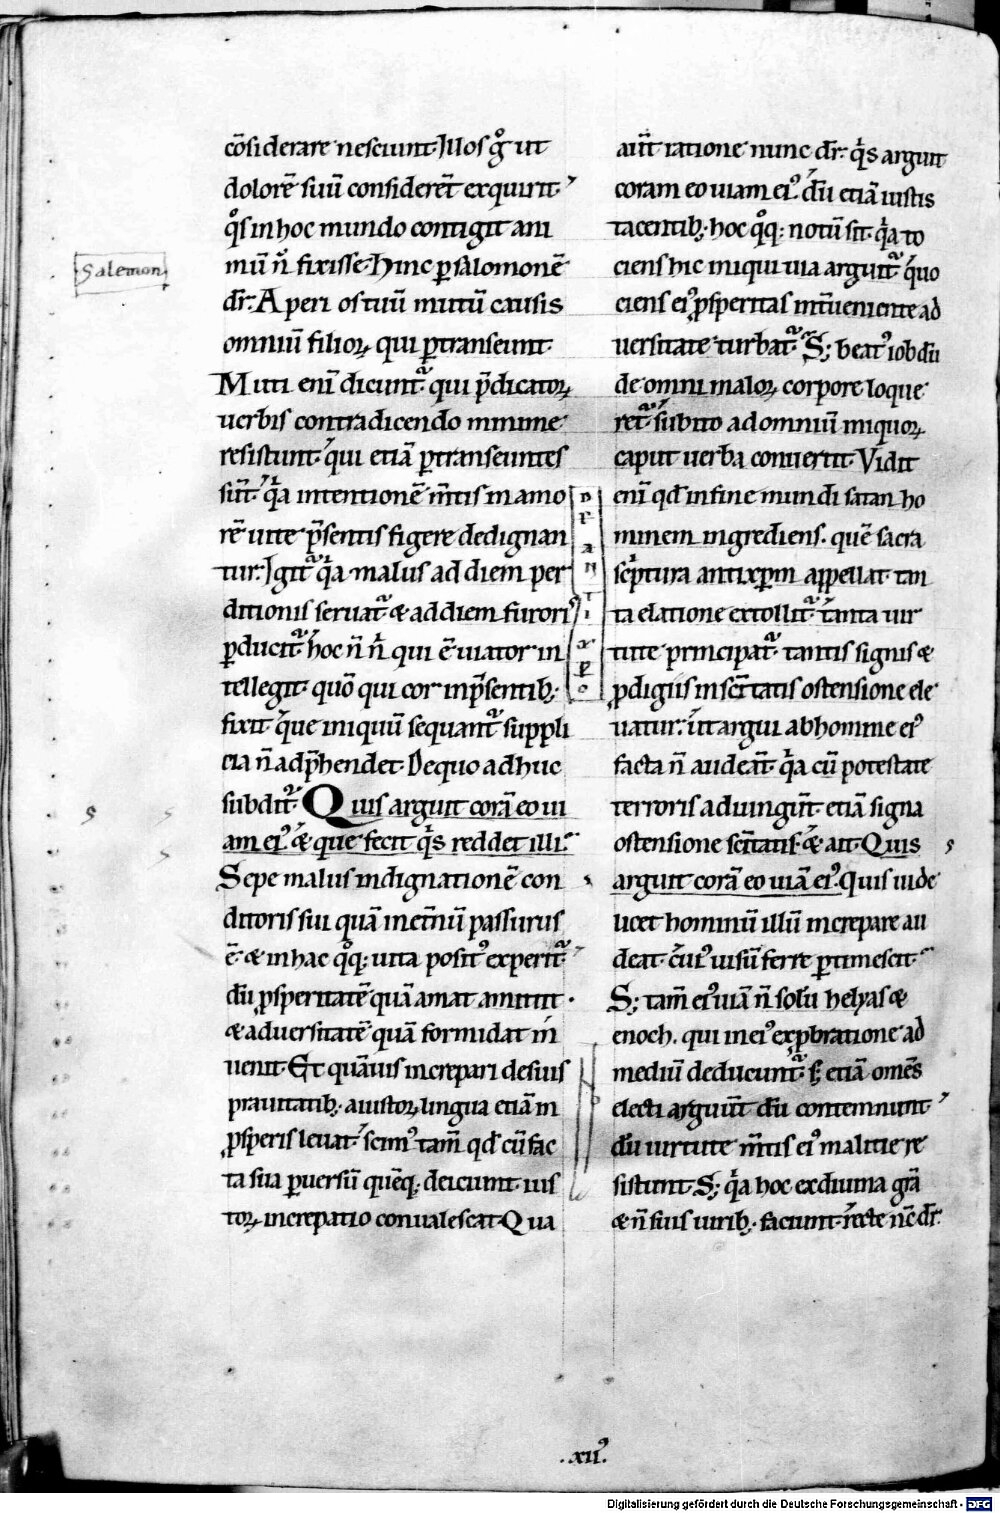 cōsiderare nesciunt. Illos g̊ ut
dolorē suū considerēt exquirit.
qͦs in hoc mundo contigit ani
mū n̄ fixisse. Hinc p̱ salomonē
dr̄. Aperi os tuū mutū causis
omniū filioꝝ qui p̱transeunt.
Muti eni᷒ dicunt᷑ qui p̄dicatoꝝ
uerbis contradicendo minime
resistunt. qui etiā p̱transeuntes
sūt. qͥa intentionē m̄tis in amo
rē uite p̄sentis figere dedignan
tur. Igit᷑ qͥa malus ad diem per
ditionis seruat᷑ & ad diem furoris
p̱ducit᷑. hoc n̄ nͥ qui ē uiator in
tellegit. quō qui cor in p̄sentib;
fixit. que iniquū sequant᷑ suppli
cia n̄ adp̄hendet. De quo adhuc
subdit᷑. Quis arguit corā eo ui
am eiꝰ. & que fecit qͥs reddet illi.
Sepe malus indignationē con
ditoris sui quā in etnū passurus
ē. & in hac qͦq; uita positꝰ experit᷑
dū ꝓsperitatē quā amat amittit.
& aduersitatē quā formidat in
uenit. Et quāuis increpari de suis
prauitatib; a iustoꝝ lingua etiā in
ꝓsperis leuat. scimꝰ tam̄ qd̄ cū fac
ta sua p̱uersū quēq; deiciunt. ius
toꝝ increpatio conualescat. Qua
aūt ratione nunc dr̄. qͥs arguit
coram eo uiam eiꝰ. dū etiā iustis
tacentib; hoc qͦq; notū sit. qͥa to
ciens hic iniqui uia arguit᷑. quo
ciens eiꝰ ꝓsperitas int̄ueniente ad
uersitate turbat᷑. S; beatꝰ iob dū
de omni maloꝝ corpore loque
ret᷑. subito ad omniū iniquoꝝ
caput uerba conuertit. Vidit
eni᷒ qd̄ in fine mundi satan ho
minem ingrediens. quē sacra
sc̄ptura antixp̄m appellat tan
ta elatione extollit᷑. tanta uir
tute principat᷑. tantis signis &
ꝓdigiis in sc̄itatis ostensione ele
uatur. ut argui ab homine eiꝰ
facta n̄ audeāt. qͥa cū potestate
terroris adiungūt etiā signa
ostensione sc̄itatis. & ait. Quis
arguit corā eo uiā eiꝰ. Quis uide
licet hominū illū increpare au
deat. cuiꝰ uisū ferre p̱timescit.
S; tam̄ eiꝰ uiā n̄ solū helyas &
enoch. qui in eiꝰ exꝓbratione ad
mediū deducunt᷑. s; etiā om̄s
electi arguūt dū contemnunt.
dū uirtute m̄tis eiꝰ malitie re
sistunt. S; qͥa hoc ex diuina gr̄a
& n̄ suis uirib; faciunt. recte nc̄ dr̄.
Salemon
De antixpo
.xiiꝰ.
Digitalisierung gefördert durch die Deutsche Forschungsgemeinschaft - DFG